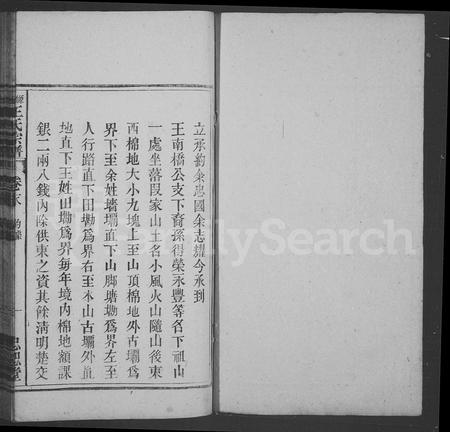 立承約余忠國余志耀今承到
王南橋公支下裔孫得榮永豐等名下祖山
一處坐落段家山土名小風火山隨山後東
西棉地大小九塊上至山頂棉地外古墈為
界下至余姓墻墈直下山脚塘塝爲界左至
人行路直下田塝爲界右至本山古墈外直
地直下王姓山塝爲界每年境內棉地額課
銀二兩八錢內除供東之資其餘清明楚交
王氏宗譜
卷末
FamilySearch